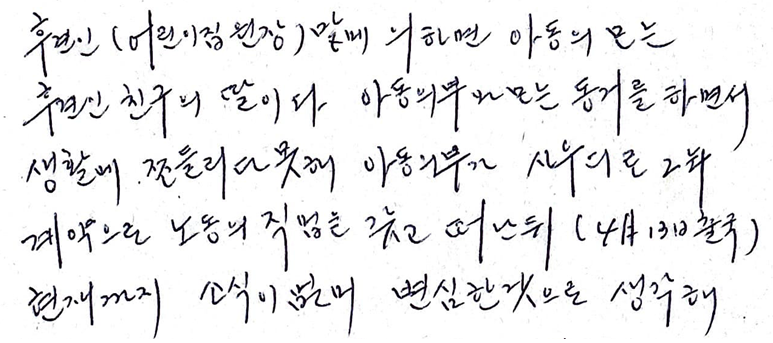 후견인 (어린이집 원장) 말에 의하면 아동의 모는
후견인 친구의 딸이다. 아동의 부와 모는 동거를 하면서
생활에 쪼들리다 못해 아동의 부가 사우디로 2년
계약으로 노동의 직업을 갖고 떠난 뒤 (4月 13日 출국)
현재까지 소식이 없으며 변심한 것으로 생각해